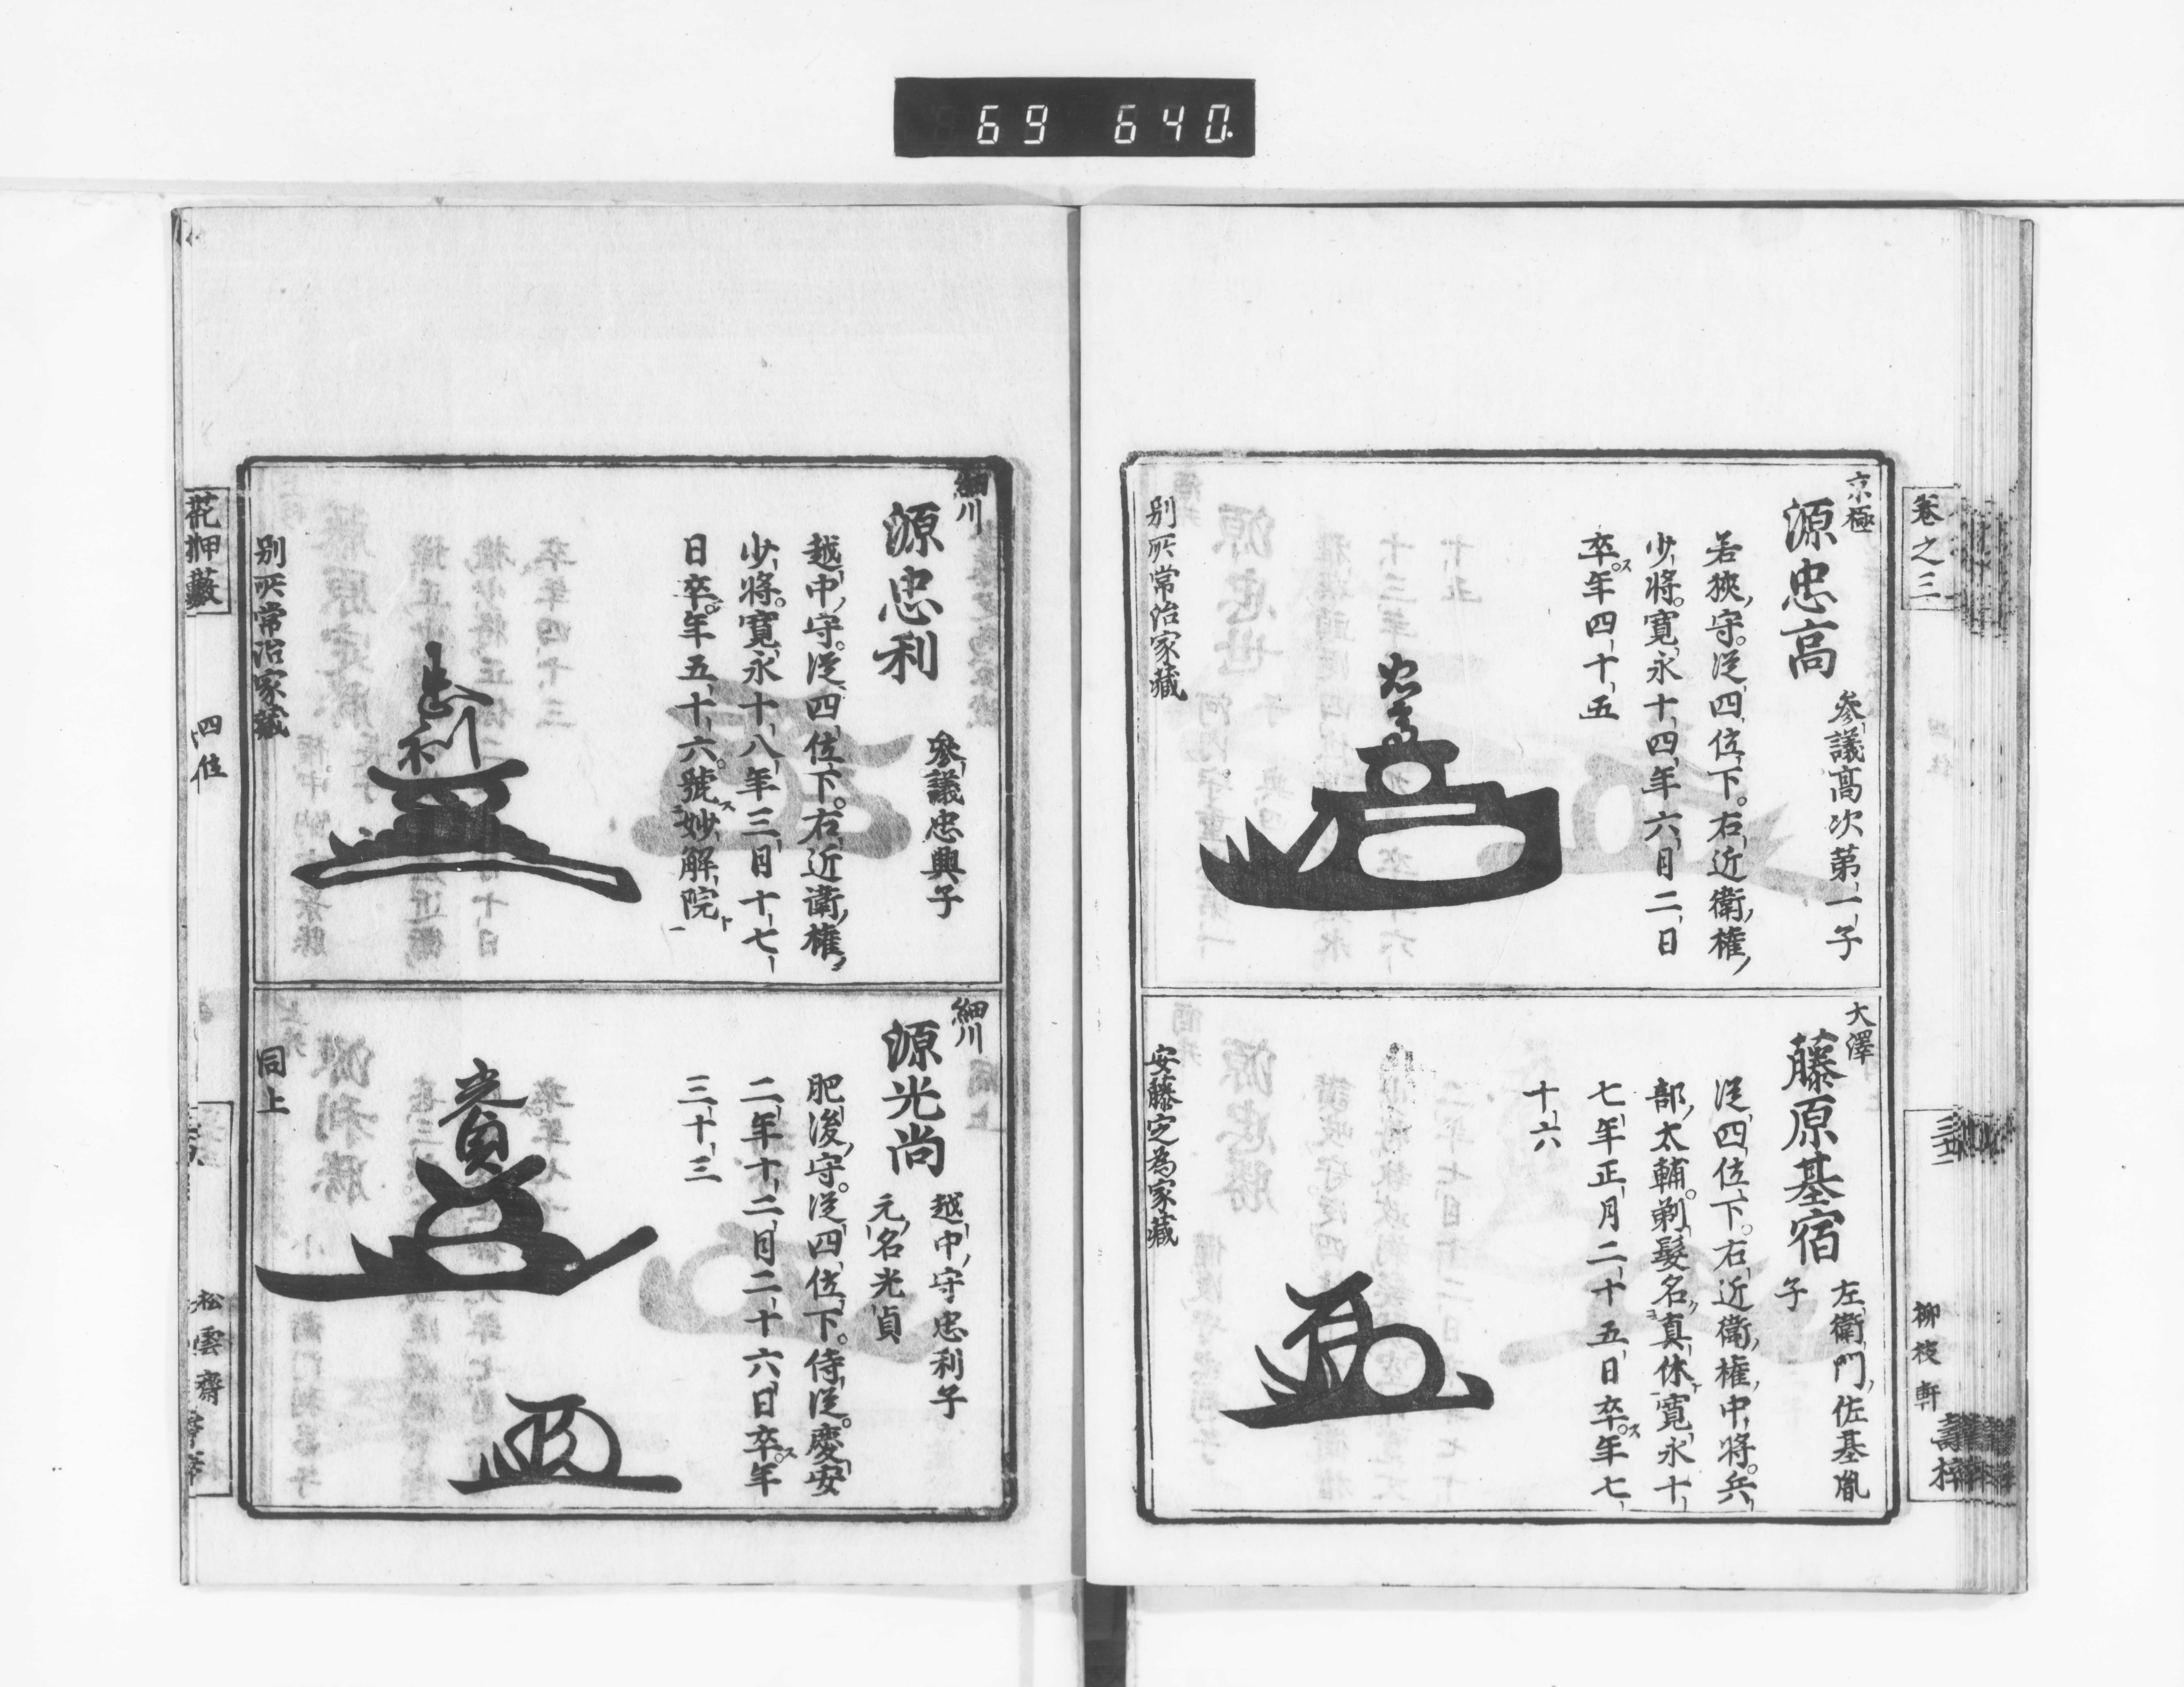 69 640.
卷之三
柳枝軒
京極
源忠高
參議高次第一子
若狹守。從四位下。右近衛權
少將。寬永十四年六月二日
卒ス。年四十五
別所常治家藏
大澤
藤原基宿
左衛門佐基胤
子
從四位下。右近衛權中將。兵
部太輔。剃髮名真休。寬永十
七年正月二十五日卒ス。年七
十六
安藤定為家藏
細川
源忠利
參議忠興子
越中守。從四位下。右近衛權
少將。寬永十八年三月十七
日卒ス。年五十六。號ス妙解院ト
忠利
別所常治家藏
細川
源光尚
越中守忠利子
元名光貞
肥後守。從四位下。侍從。慶安
二年十二月二十六日卒ス。年
三十三
光貞
同上
花押藪
四位
松雲齋